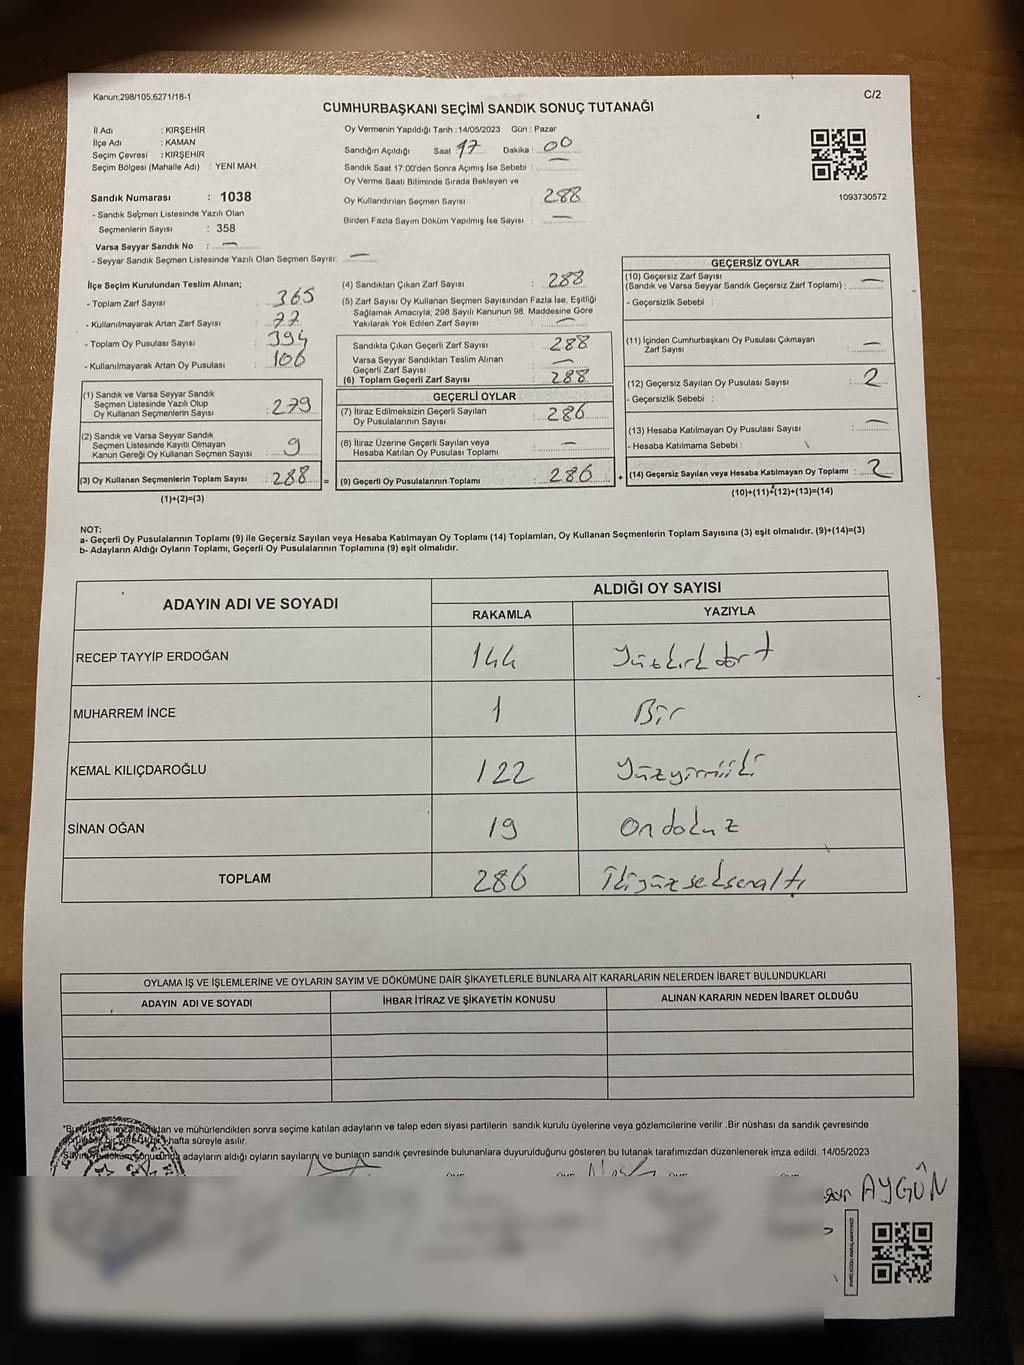 Kanun;298/105,6271/18-1
C/2
CUMHURBAŞKANI SEÇİMİ SANDIK SONUÇ TUTANAĞI
İl Adı : KIRŞEHİR
İlçe Adı : KAMAN
Seçim Çevresi : KIRŞEHİR
Seçim Bölgesi (Mahalle Adı) : YENİ MAH.
Oy Vermenin Yapıldığı Tarih : 14/05/2023 Gün : Pazar
Sandığın Açıldığı Saat 17 Dakika : 00
Sandık Saat 17:00'den Sonra Açımış İse Sebebi : —
Oy Verme Saati Bitiminde Sırada Bekleyen ve
Oy Kullandırılan Seçmen Sayısı : 288
Birden Fazla Sayım Döküm Yapılmış İse Sayısı : —
1093730572
Sandık Numarası : 1038
- Sandık Seçmen Listesinde Yazılı Olan
Seçmenlerin Sayısı : 358
Varsa Seyyar Sandık No : —
- Seyyar Sandık Seçmen Listesinde Yazılı Olan Seçmen Sayısı: —
İlçe Seçim Kurulundan Teslim Alınan;
- Toplam Zarf Sayısı : 365
- Kullanılmayarak Artan Zarf Sayısı : 77
- Toplam Oy Pusulası Sayısı : 394
- Kullanılmayarak Artan Oy Pusulası : 106
(1) Sandık ve Varsa Seyyar Sandık
Seçmen Listesinde Yazılı Olup
Oy Kullanan Seçmenlerin Sayısı : 279
(2) Sandık ve Varsa Seyyar Sandık
Seçmen Listesinde Kayıtlı Olmayan
Kanun Gereği Oy Kullanan Seçmen Sayısı : 9
(3) Oy Kullanan Seçmenlerin Toplam Sayısı : 288 =
(1)+(2)=(3)
(4) Sandıktan Çıkan Zarf Sayısı : 288
(5) Zarf Sayısı Oy Kullanan Seçmen Sayısından Fazla İse, Eşitliği
Sağlamak Amacıyla; 298 Sayılı Kanunun 98. Maddesine Göre
Yakılarak Yok Edilen Zarf Sayısı : —
Sandıkta Çıkan Geçerli Zarf Sayısı : 288
Varsa Seyyar Sandıktan Teslim Alınan
Geçerli Zarf Sayısı : —
(6) Toplam Geçerli Zarf Sayısı : 288
GEÇERLİ OYLAR
(7) İtiraz Edilmeksizin Geçerli Sayılan
Oy Pusulalarının Sayısı : 286
(8) İtiraz Üzerine Geçerli Sayılan veya
Hesaba Katılan Oy Pusulası Toplamı : —
(9) Geçerli Oy Pusulalarının Toplamı : 286 +
GEÇERSİZ OYLAR
(10) Geçersiz Zarf Sayısı
(Sandık ve Varsa Seyyar Sandık Geçersiz Zarf Toplamı) : —
- Geçersizlik Sebebi :
(11) İçinden Cumhurbaşkanı Oy Pusulası Çıkmayan
Zarf Sayısı : —
(12) Geçersiz Sayılan Oy Pusulası Sayısı : 2
- Geçersizlik Sebebi :
(13) Hesaba Katılmayan Oy Pusulası Sayısı : —
- Hesaba Katılmama Sebebi :
(14) Geçersiz Sayılan veya Hesaba Katılmayan Oy Toplamı : 2
(10)+(11)+(12)+(13)=(14)
NOT:
a- Geçerli Oy Pusulalarının Toplamı (9) ile Geçersiz Sayılan veya Hesaba Katılmayan Oy Toplamı (14) Toplamları, Oy Kullanan Seçmenlerin Toplam Sayısına (3) eşit olmalıdır. (9)+(14)=(3)
b- Adayların Aldığı Oyların Toplamı, Geçerli Oy Pusulalarının Toplamına (9) eşit olmalıdır.
ADAYIN ADI VE SOYADI
ALDIĞI OY SAYISI
RAKAMLA YAZIYLA
RECEP TAYYİP ERDOĞAN 144 Yüzkırkdört
MUHARREM İNCE 1 Bir
KEMAL KILIÇDAROĞLU 122 Yüzyirmiiki
SİNAN OĞAN 19 Ondokuz
TOPLAM 286 İkiyüzseksenaltı
OYLAMA İŞ VE İŞLEMLERİNE VE OYLARIN SAYIM VE DÖKÜMÜNE DAİR ŞİKAYETLERLE BUNLARA AİT KARARLARIN NELERDEN İBARET BULUNDUKLARI
ADAYIN ADI VE SOYADI İHBAR İTİRAZ VE ŞİKAYETİN KONUSU ALINAN KARARIN NEDEN İBARET OLDUĞU
ve mühürlendikten sonra seçime katılan adayların ve talep eden siyasi partilerin sandık kurulu üyelerine veya gözlemcilerine verilir .Bir nüshası da sandık çevresinde
hafta süreyle asılır.
adayların aldığı oyların sayılarını ve bunların sandık çevresinde bulunanlara duyurulduğunu gösteren bu tutanak tarafımızdan düzenlenerek imza edildi. 14/05/2023
AYGÜN